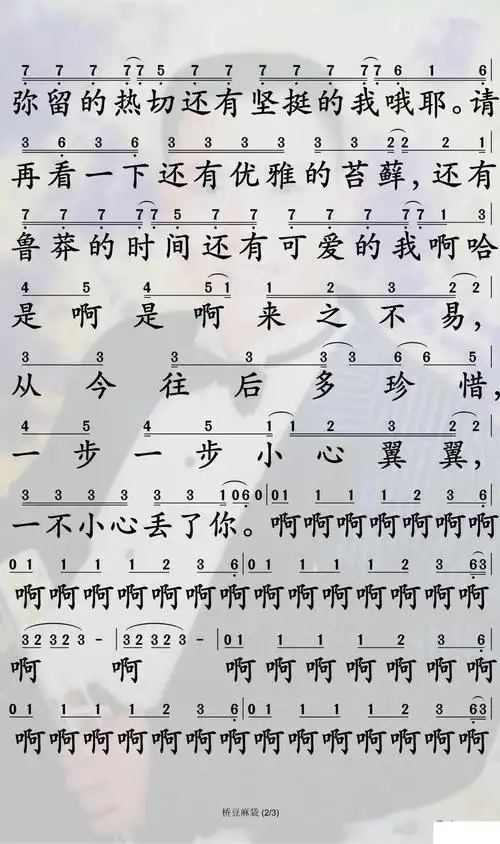 7 7 7 7 7 5 7 7 7 7 7 7 7 6 1 6
弥留的热切还有坚挺的我哦耶。请
3 6 3 6 3 3 3 3 3 3 2 2 2 1
再看一下还有优雅的苔藓,还有
7 7 7 7 7 5 7 7 7 7 7 7 7 1 3
鲁莽的时间还有可爱的我啊哈
4 5 4 5 1 1 2 3 2 2
是啊是啊来之不易,
3 3 3 3 3 3 6 6 5
从今往后多珍惜,
4 5 4 5 1 1 2 3 2 2
一步一步小心翼翼,
3 3 3 3 3 3 1 0 6 0 | 0 1 1 1 1 2 3 6
一不小心丢了你。啊啊啊啊啊啊啊
0 1 1 1 1 2 3 6 | 0 1 1 1 1 2 3 6 3
啊啊啊啊啊啊啊啊啊啊啊啊啊啊
3 2 3 2 3 - | 3 2 3 2 3 - | 0 1 1 1 1 2 3 6
啊 啊 啊啊啊啊啊啊啊
0 1 1 1 1 2 3 6 | 0 1 1 1 1 2 3 6 3
啊啊啊啊啊啊啊啊啊啊啊啊啊啊
桥豆麻袋 (2/3)